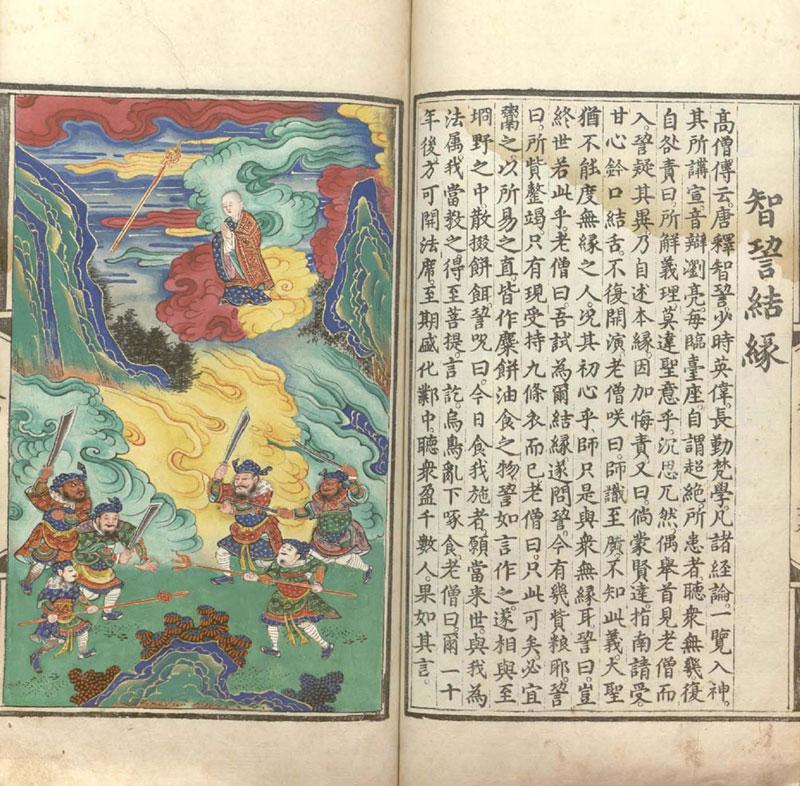 智䛒結緣
高僧傳云。唐釋智䛒少時英偉。長勤梵學。凡諸經論。一覽入神。
其所講宣。音辯瀏亮。每臨臺座。自謂超絶。所患者。聽衆無幾。復
自咎責曰。所解義理。莫違聖意乎。沉思兀然。偶舉首見老僧而
入。䛒疑其異。乃自述本緣。因加悔責。又曰。倘蒙賢達。指南請受。
甘心鈐口結舌。不復開演。老僧咲曰。師識至廣。不知此義。大聖
猶不能度無緣之人。况其初心乎。師只是與衆無緣耳。䛒曰。豈
終世若此乎。老僧曰。吾試為爾結緣。遂問䛒。今有幾貲粮耶。䛒
曰。所賫罄竭。只有現受持九條衣而已。老僧曰。只此可矣。必宜
鬻之。以所易之直。皆作糜餅油食之物。䛒如言作之。遂相與至
坰野之中。散掇餅餌。䛒咒曰。今日食我施者。願當来世。與我為
法属。我當教之。得至菩提。言訖。烏鳥亂下啄食。老僧曰。爾一十
年後方可開法席。至期盛化鄴中。聽衆盈千數人。果如其言。